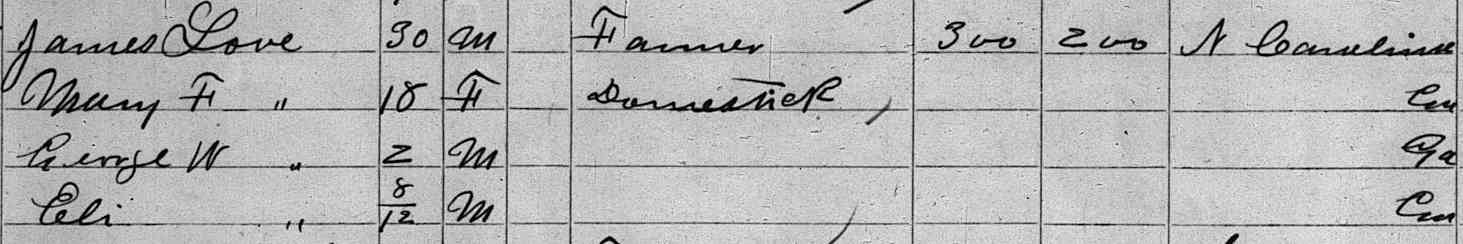 James Love 30 M Farmer 300 200 N Carolina
Mary F " 18 F Domestick
George W " 2 M Ga
Eli " 8/12 M